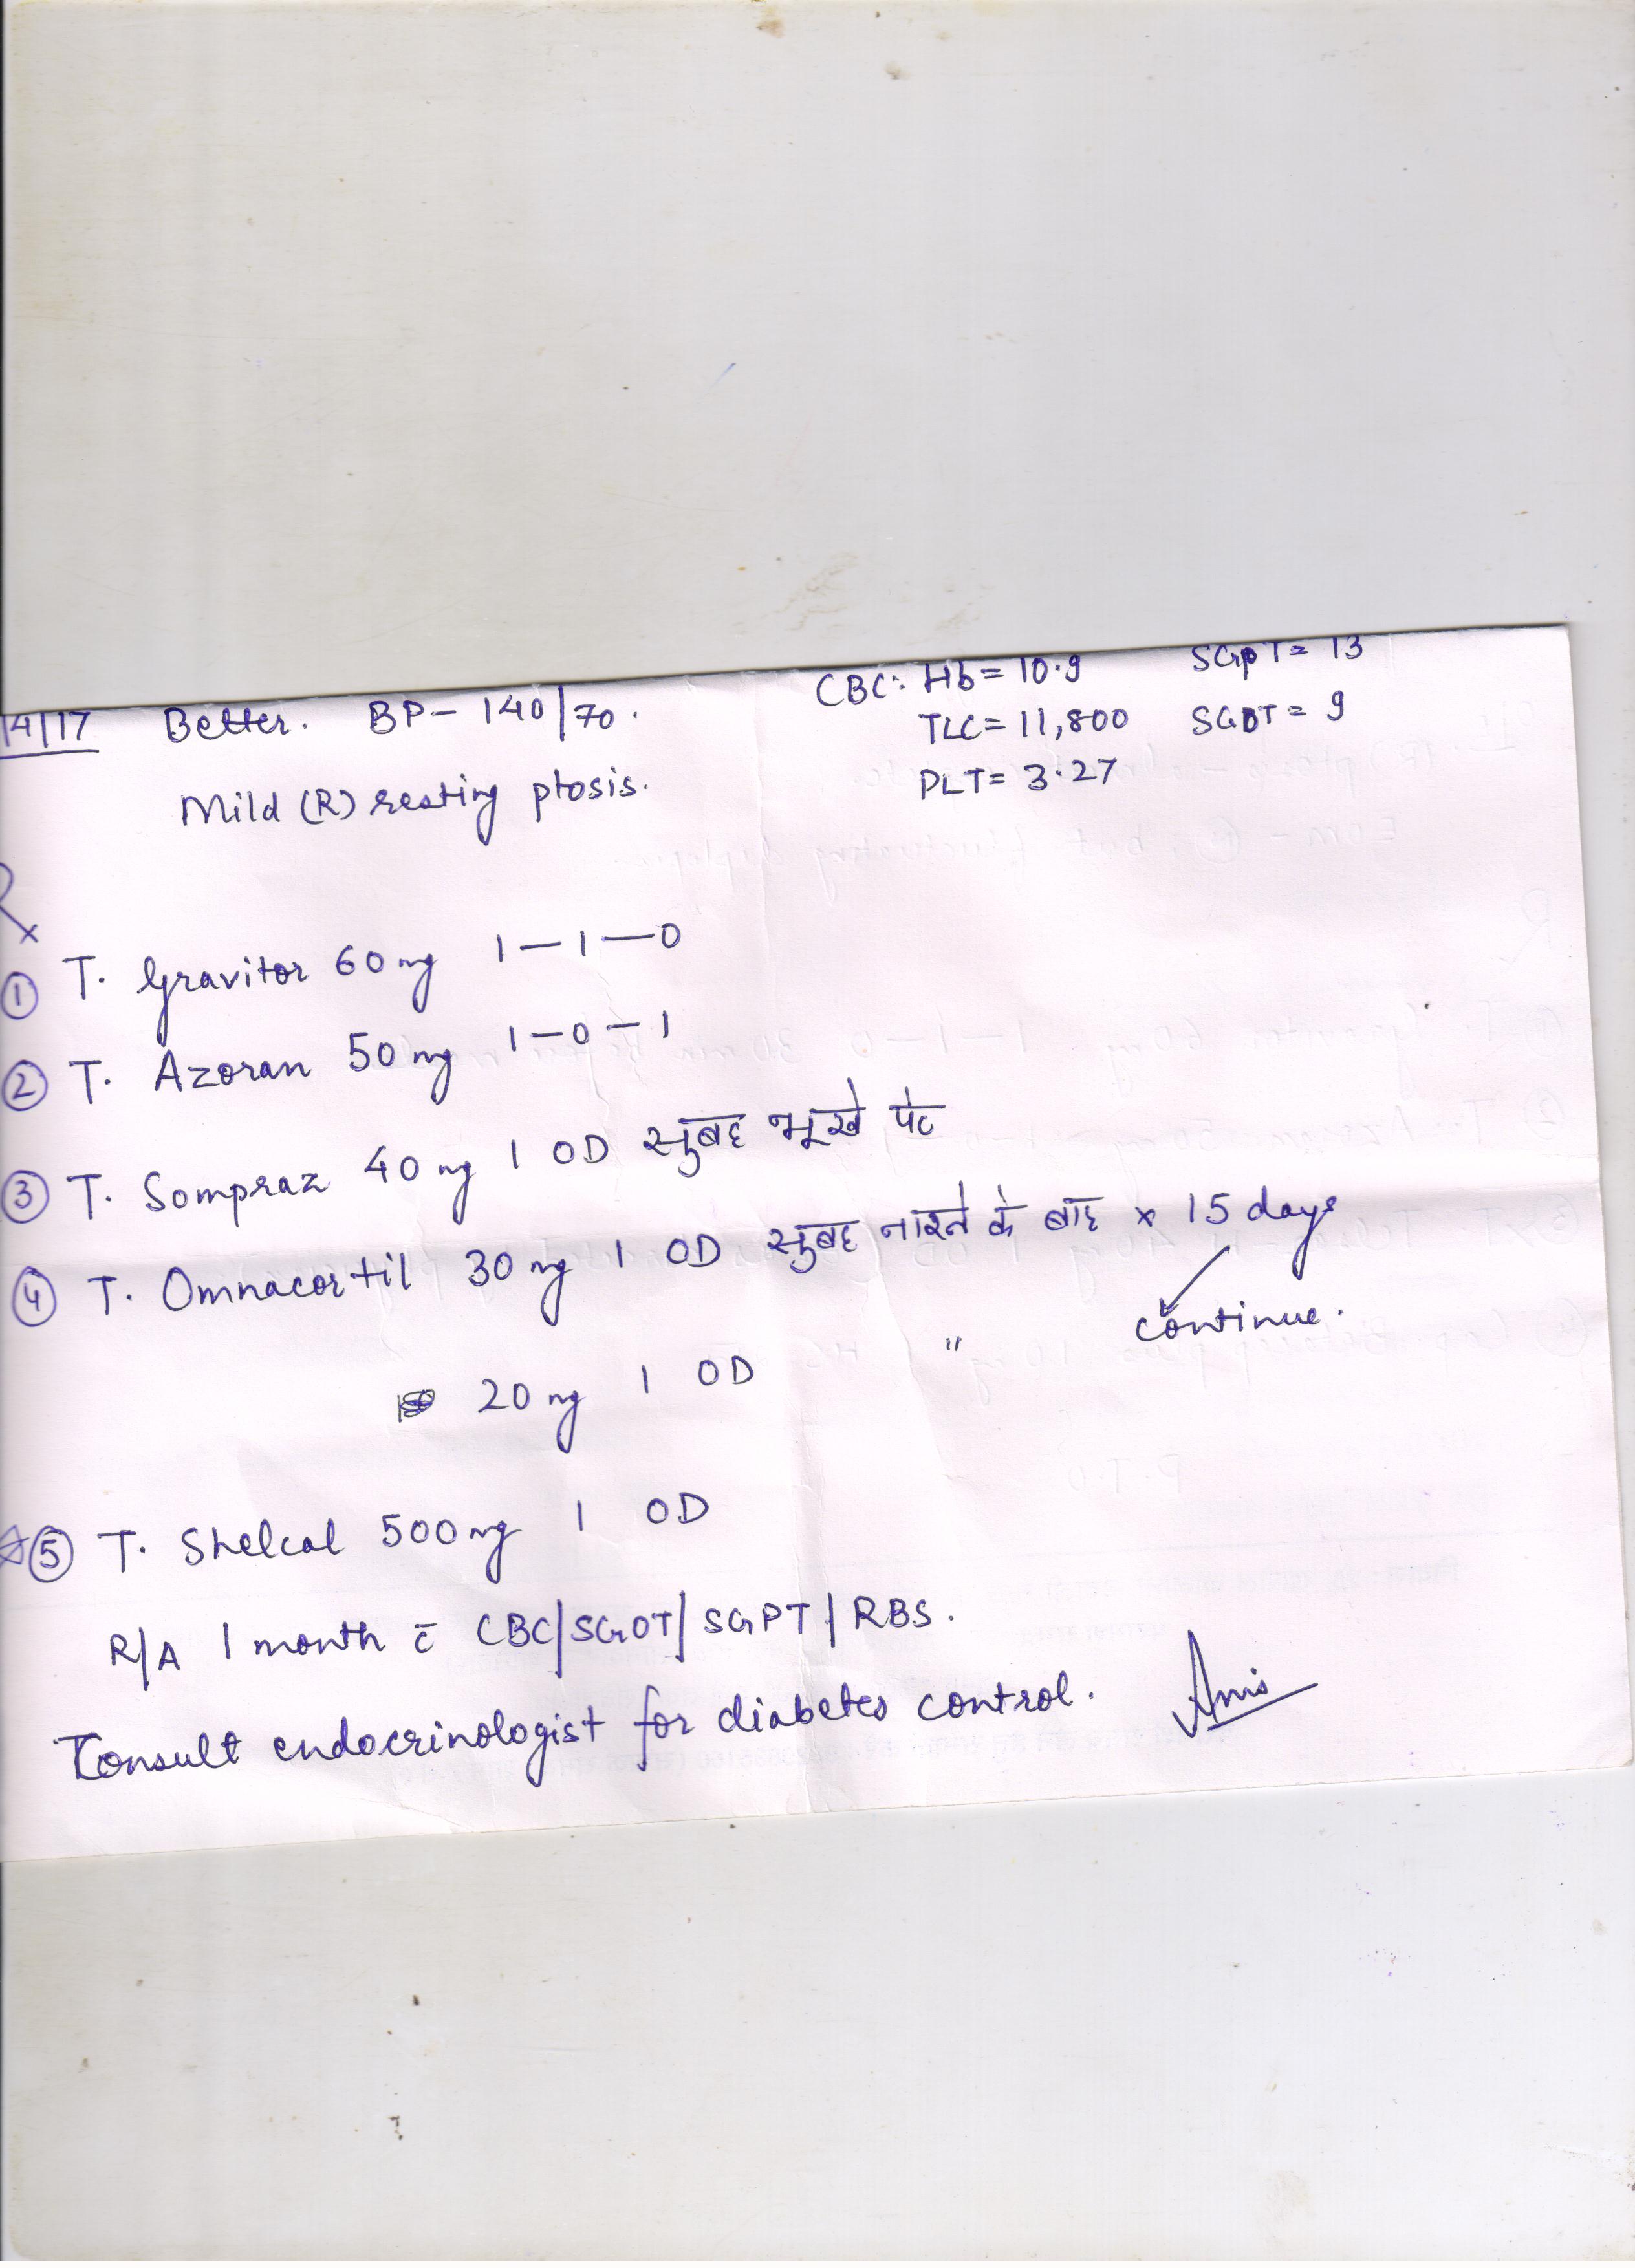 14/17 Better. BP- 140/70. CBC: Hb= 10.9 SGPT= 13
TLC= 11,800 SGOT= 9
Mild (R) resting ptosis. PLT= 3.27
Rx
① T. Gravitor 60 mg 1-1-0
② T. Azoran 50 mg 1-0-1
③ T. Sompraz 40 mg 1 OD सुबह भूखे पेट
④ T. Omnacortil 30 mg 1 OD सुबह नाश्ते के बाद x 15 days
20 mg 1 OD " continue.
⑤ T. Shelcal 500 mg 1 OD
R/A 1 month c̄ CBC/SGOT/SGPT/RBS.
Consult endocrinologist for diabetes control.